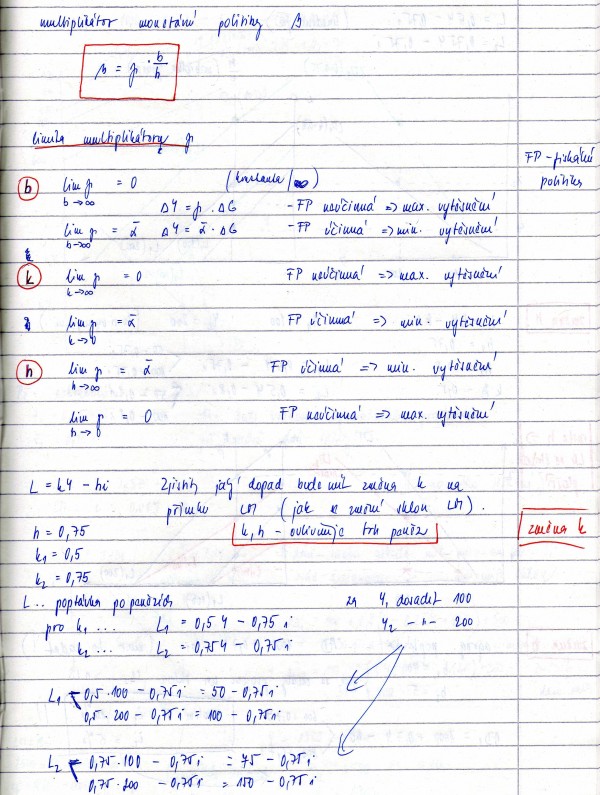 multiplikátor monetární politiky β
β = γ · b/h
limita multiplikátoru γ
FP - fiskální politika
b lim γ = 0 (konstanta/∞)
b→∞ ΔY = γ · ΔG - FP neúčinná => max. vytěsnění
lim γ = ᾱ ΔY = ᾱ · ΔG - FP účinná => min. vytěsnění
b→0
k lim γ = 0 FP neúčinná => max. vytěsnění
k→∞
lim γ = ᾱ FP účinná => min. vytěsnění
k→0
h lim γ = ᾱ FP účinná => min. vytěsnění
h→∞
lim γ = 0 FP neúčinná => max. vytěsnění
h→0
L = kY - hi Zjistěte jaký dopad bude mít změna k na
přímku LM (jak se změní sklon LM).
h = 0,75 k, h - ovlivňuje trh peněz změna k
k₁ = 0,5
k₂ = 0,75
L .. poptávka po penězích za Y₁ dosadit 100
pro k₁ ... L₁ = 0,5Y - 0,75i Y₂ -"- 200
k₂ ... L₂ = 0,75Y - 0,75i
L₁ 0,5·100 - 0,75i = 50 - 0,75i
0,5·200 - 0,75i = 100 - 0,75i
L₂ 0,75·100 - 0,75i = 75 - 0,75i
0,75·200 - 0,75i = 150 - 0,75i